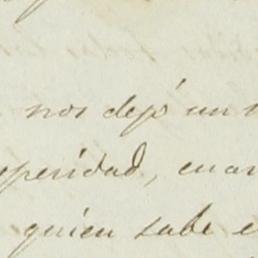 nos dejó un
speridad, cuan
quien sabe e